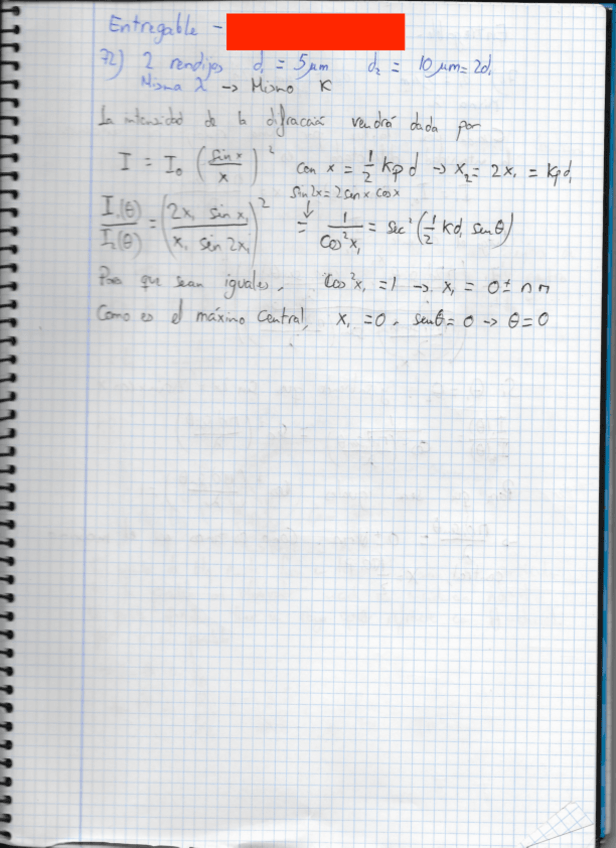 Entregable -
72) 2 rendijas d₁ = 5 μm d₂ = 10 μm = 2d₁
Misma λ -> Mismo K
La intensidad de la difracción vendrá dada por
I = I₀ (sin x / x)² con x = 1/2 k p d -> x₂ = 2x₁ = kpd₁
sin2x = 2 sen x cos x
I₁(θ)/I₂(θ) = (2x₁ sin x₁ / x₁ sin 2x₁)² = 1/cos²x₁ = sec²(1/2 kd₁ senθ)
Para que sean iguales, cos²x₁ = 1 -> x₁ = 0 ± nπ
Como es el máximo central, x₁ = 0, senθ = 0 -> θ = 0